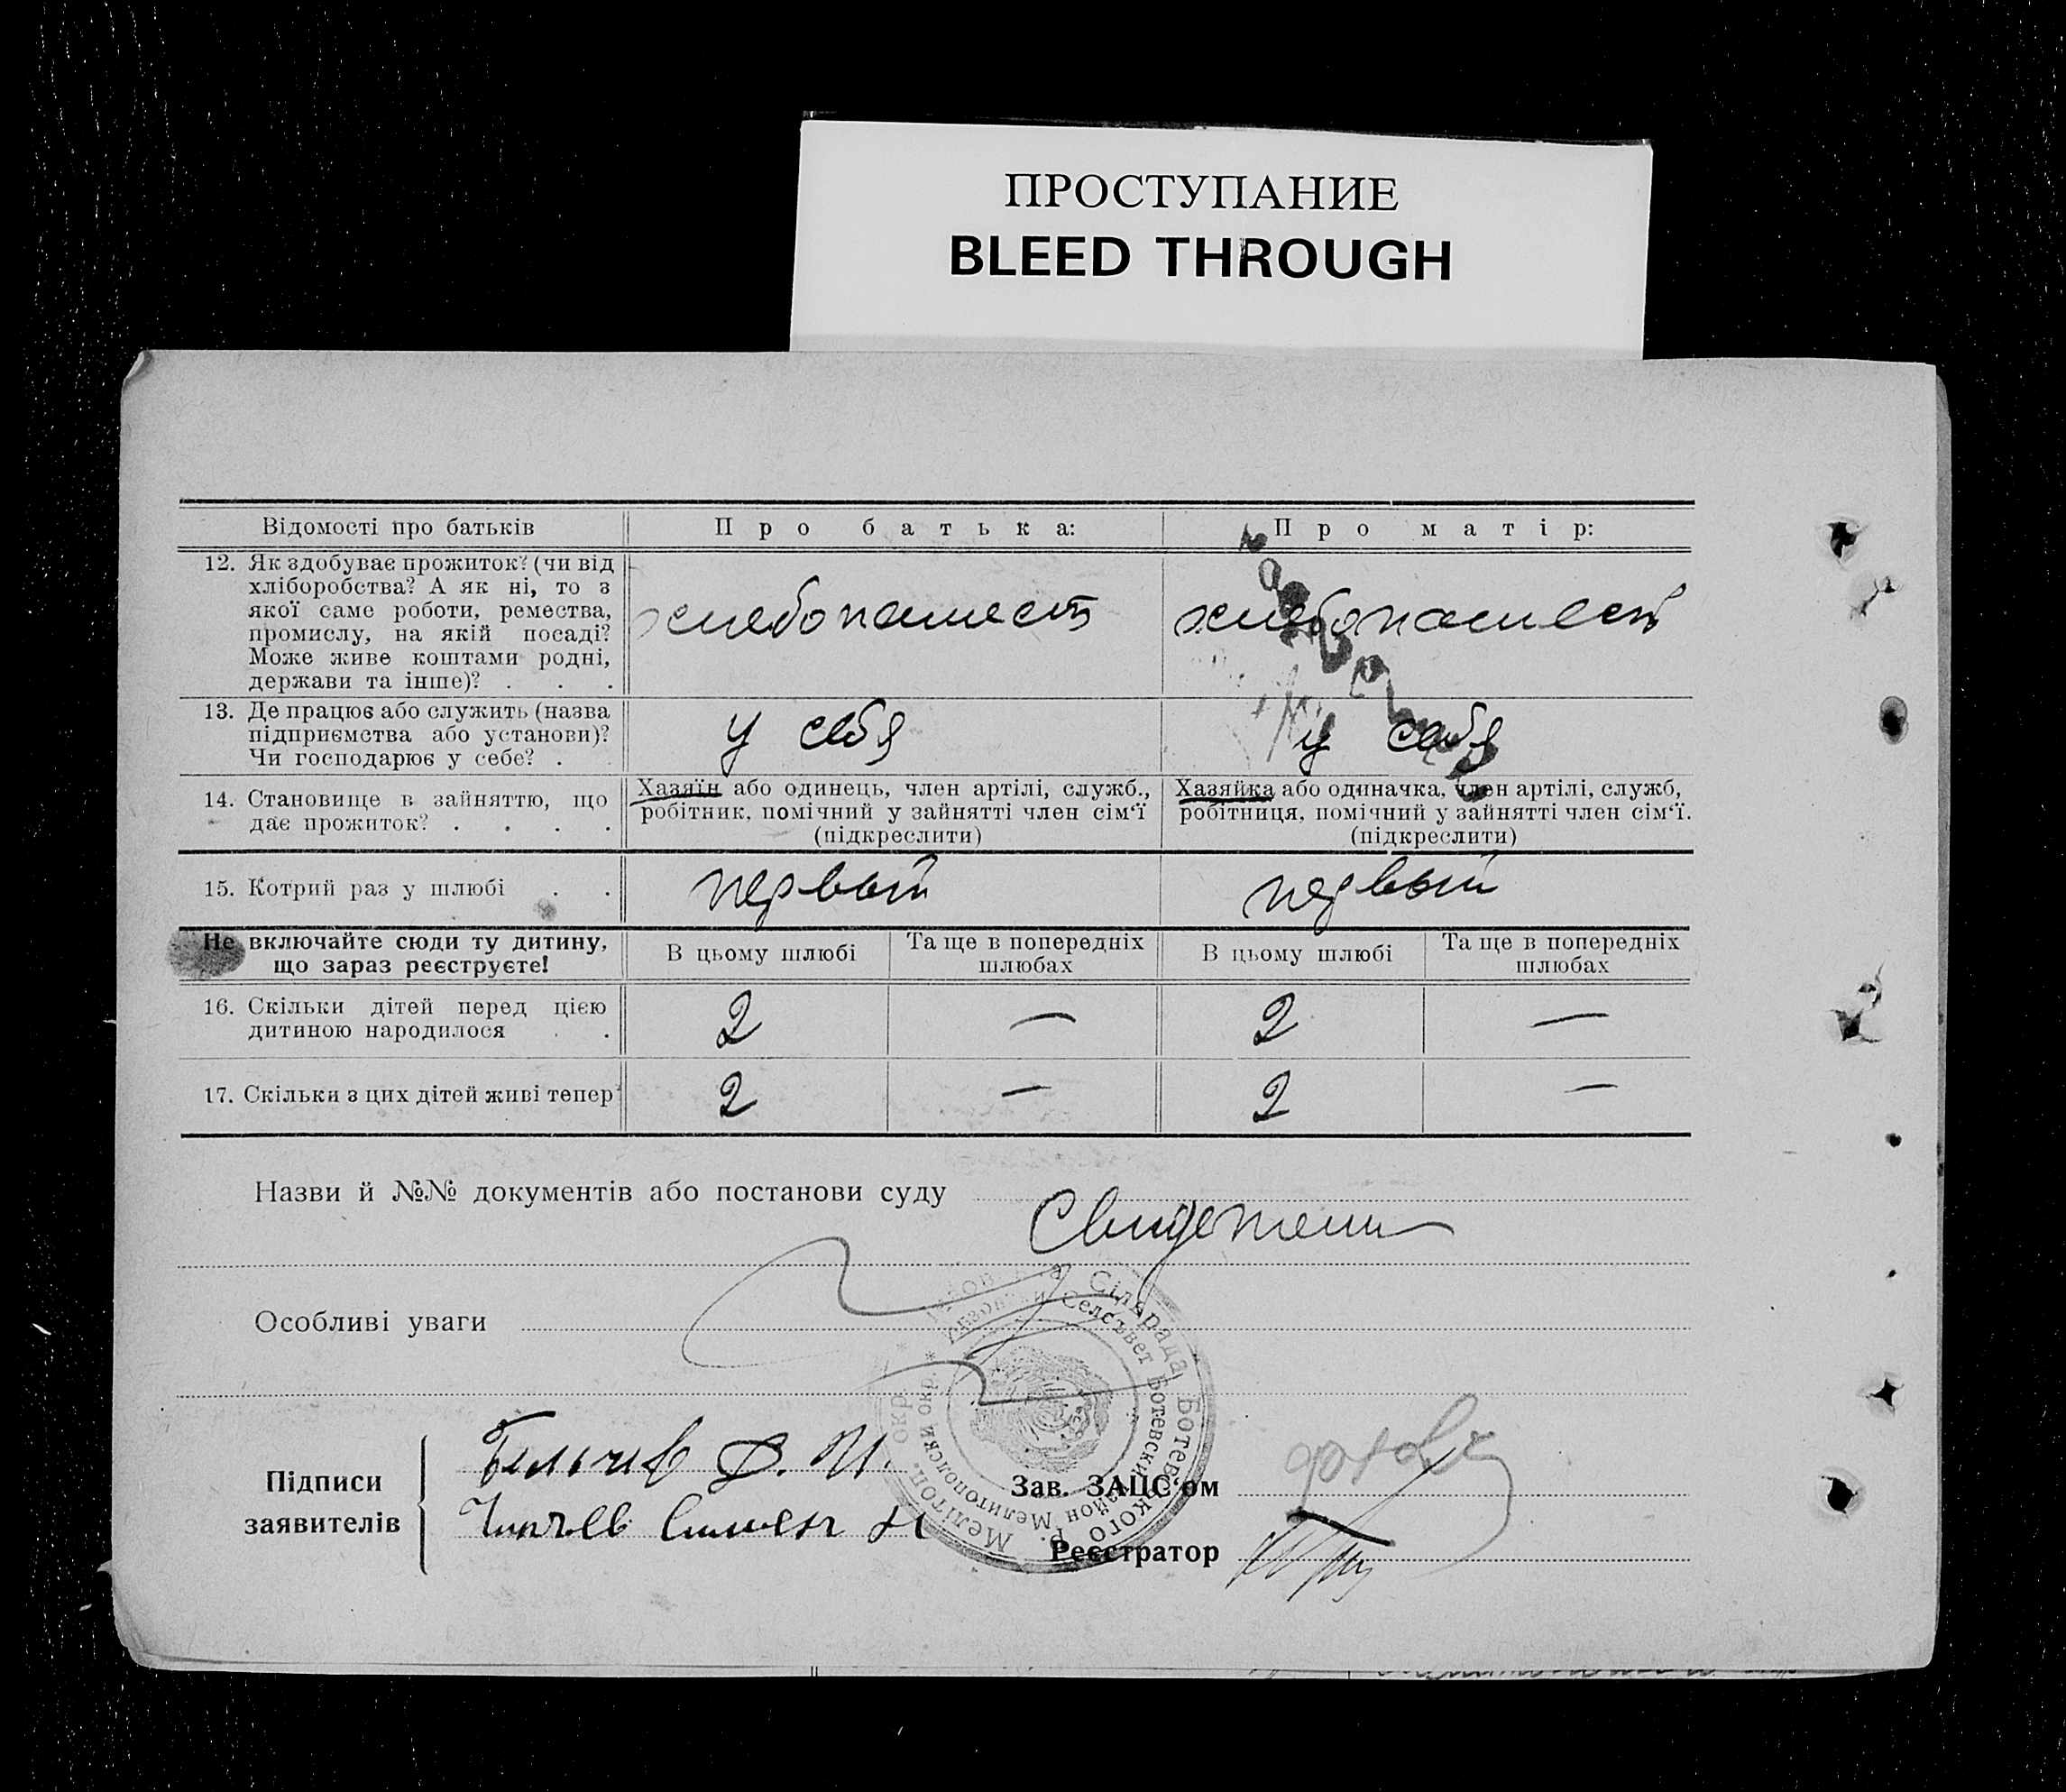 ПРОСТУПАНИЕ
BLEED THROUGH
Відомості про батьків
Про батька:
Про матір:
12. Як здобуває прожиток? (чи від
хліборобства? А як ні, то з
якої саме роботи, ремества,
промислу, на якій посаді?
Може живе коштами родні,
держави та інше)? . . .
хлебопашест
хлебопашест
13. Де працює або служить (назва
підприємства або установи)?
Чи господарює у себе? .
у себя
у себя
14. Становище в зайняттю, що
дає прожиток? . . . .
Хазяїн або одинець, член артілі, служб.,
робітник, помічний у зайнятті член сім‘ї
(підкреслити)
Хазяйка або одиначка, член артілі, служб,
робітниця, помічний у зайнятті член сім‘ї.
(підкреслити)
15. Котрий раз у шлюбі . .
первый
первый
Не включайте сюди ту дитину,
що зараз реєструєте!
В цьому шлюбі
Та ще в попередніх
шлюбах
В цьому шлюбі
Та ще в попередніх
шлюбах
16. Скільки дітей перед цією
дитиною народилося . .
2 —
2 —
17. Скільки з цих дітей живі тепер?
2 —
2 —
Назви й №№ документів або постанови суду
Свидетели
Особливі уваги
Сільрада Ботевського р. Мелітоп. окр.
Селсъвет Ботевски район Мелитополски окр.
Підписи
заявителів
Бельчев Д. И.
Симеон
Зав. ЗАЦС‘ом
Реєстратор